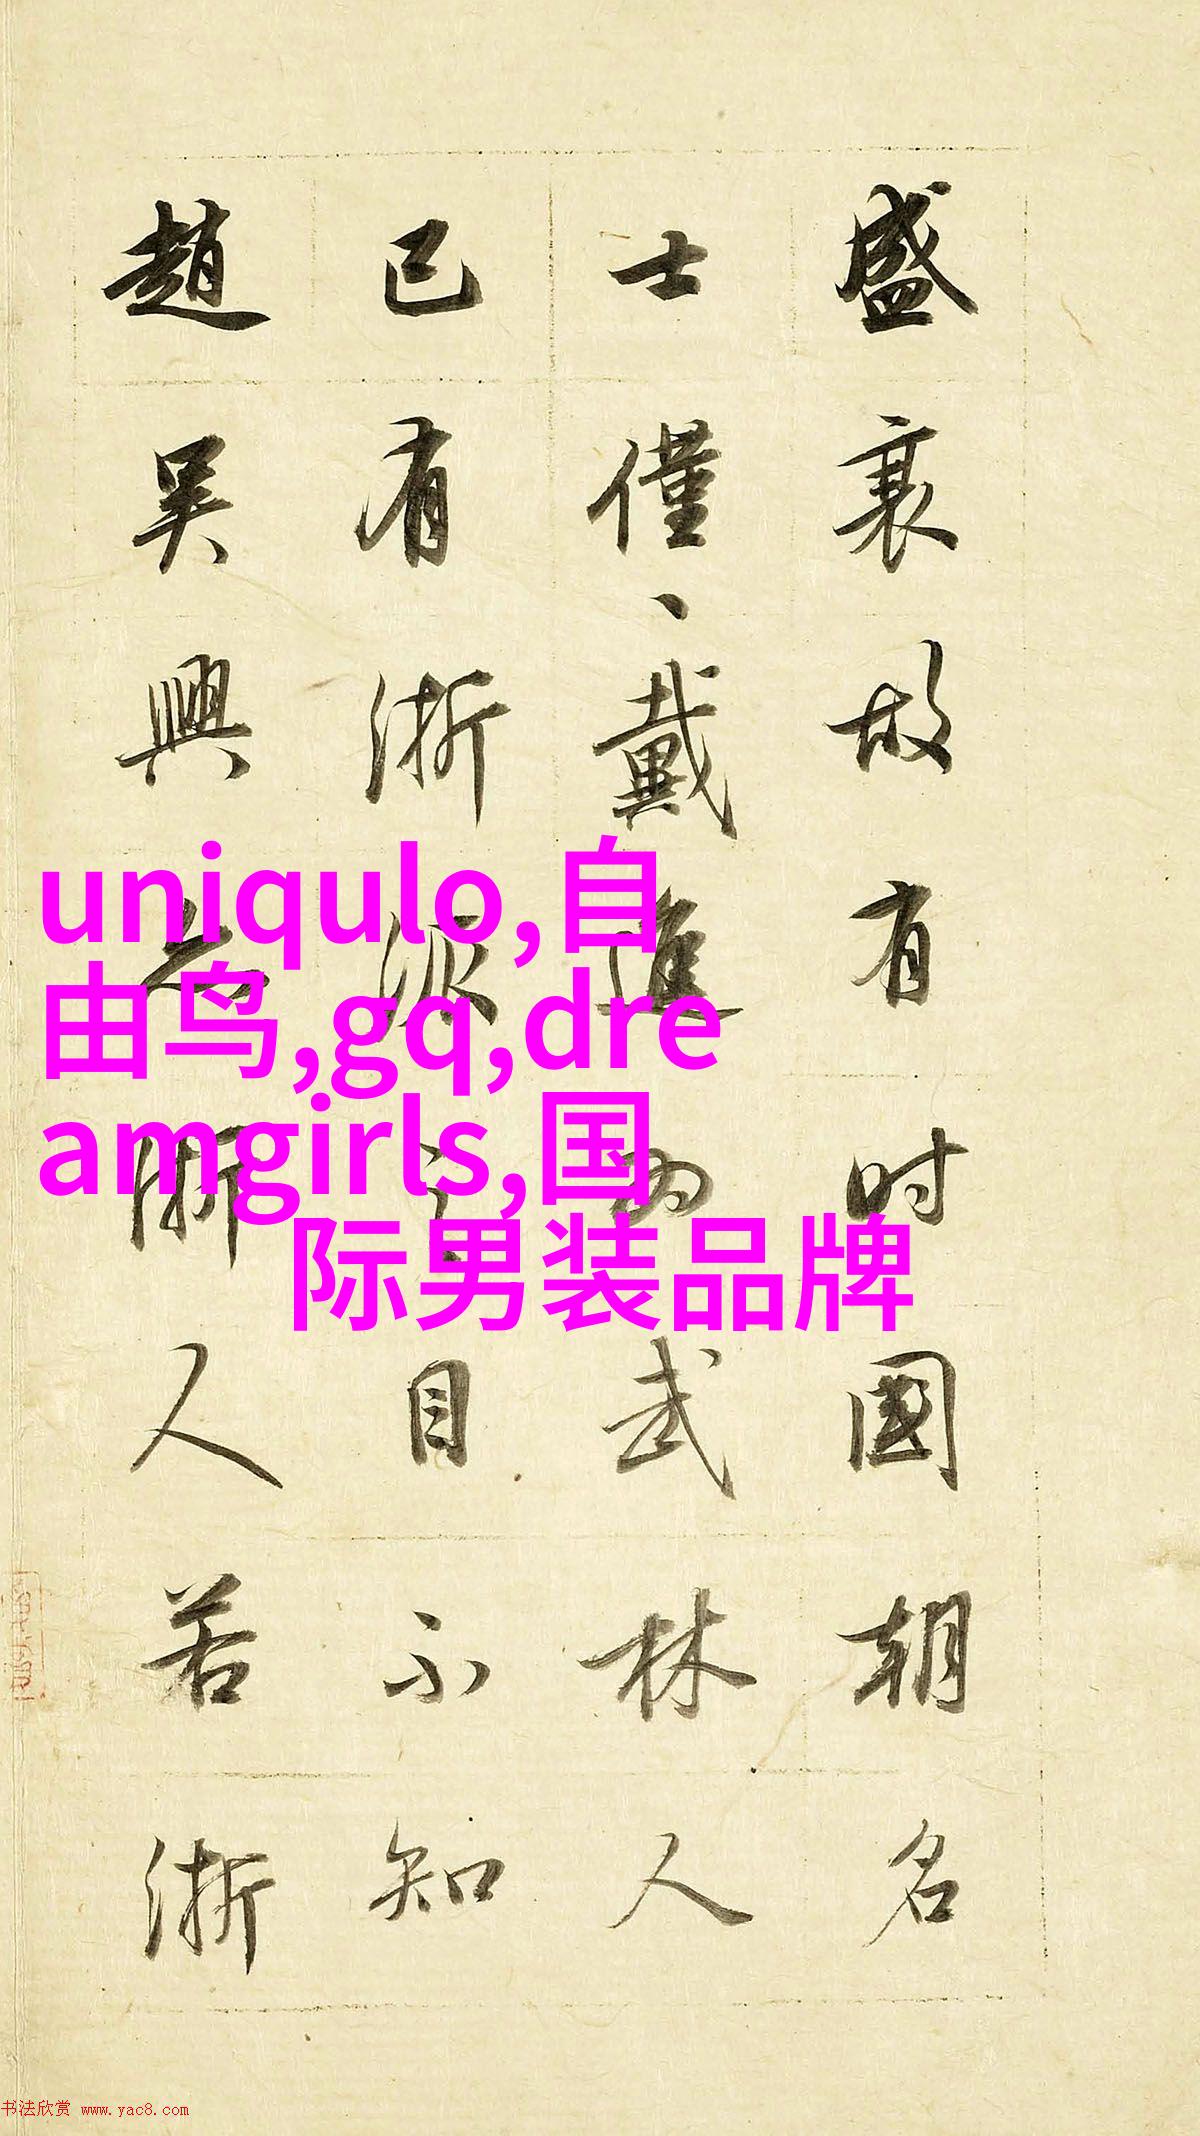 盛衰故有时國朝名
士僅、戴進為武林人
已有浙派之目不知
趙吳興亦浙人若浙
uniqulo,自
由鸟,gq,dre
amgirls,国
际男装品牌
书法欣赏 www.yac8.com